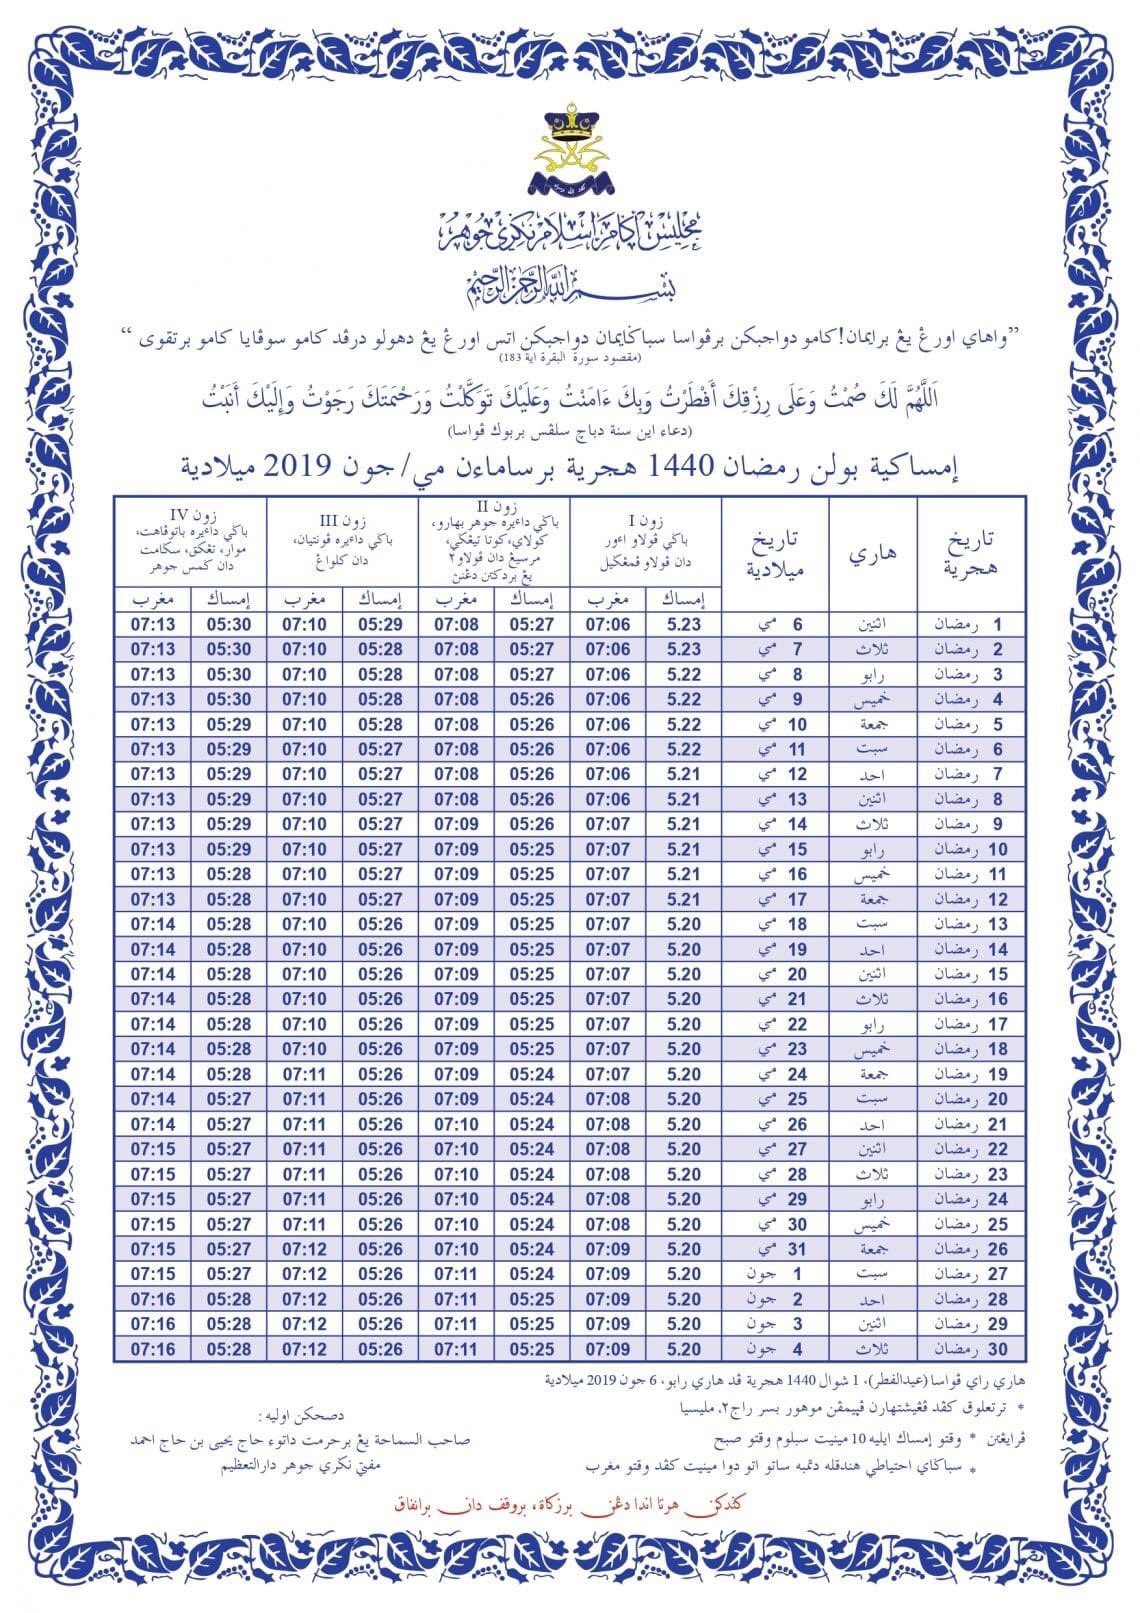 مجليس اݢام اسلام نݢري جوهر
بسم الله الرحمن الرحيم
”واهاي اورڠ يڠ برايمان! كامو دواجبكن برڤواسا سباݢايمان دواجبكن اتس اورڠ يڠ دهولو درڤد كامو سوڤايا كامو برتقوى“
(مقصود سورة البقرة اية 183)
اَللَّهُمَّ لَكَ صُمْتُ وَعَلَى رِزْقِكَ أَفْطَرْتُ وَبِكَ ءَامَنْتُ وَعَلَيْكَ تَوَكَّلْتُ وَرَحْمَتَكَ رَجَوْتُ وَإِلَيْكَ أَنَبْتُ
(دعاء اين سنة دباچ سلڤس بربوك ڤواسا)
إمساكية بولن رمضان 1440 هجرية برساماءن مي/ جون 2019 ميلادية
تاريخ هجرية | هاري | تاريخ ميلادية | زون I باݢي ڤولاو اءور دان ڤولاو ڤمڠݢيل | زون II باݢي داءيره جوهر بهارو، كولاي، كوتا تيڠݢي، مرسيڠ دان ڤولاو٢ يڠ بردكتن دڠنن | زون III باݢي داءيره ڤونتيان، دان كلواڠ | زون IV باݢي داءيره باتوڤاهت، موار، تڠكق، سݢامت دان ݢمس جوهر
إمساك مغرب إمساك مغرب إمساك مغرب إمساك مغرب
1 رمضان اثنين 6 مي 5.23 07:06 05:27 07:08 05:29 07:10 05:30 07:13
2 رمضان ثلاث 7 مي 5.23 07:06 05:27 07:08 05:28 07:10 05:30 07:13
3 رمضان رابو 8 مي 5.22 07:06 05:27 07:08 05:28 07:10 05:30 07:13
4 رمضان خميس 9 مي 5.22 07:06 05:26 07:08 05:28 07:10 05:30 07:13
5 رمضان جمعة 10 مي 5.22 07:06 05:26 07:08 05:28 07:10 05:29 07:13
6 رمضان سبت 11 مي 5.22 07:06 05:26 07:08 05:27 07:10 05:29 07:13
7 رمضان احد 12 مي 5.21 07:06 05:26 07:08 05:27 07:10 05:29 07:13
8 رمضان اثنين 13 مي 5.21 07:06 05:26 07:08 05:27 07:10 05:29 07:13
9 رمضان ثلاث 14 مي 5.21 07:07 05:26 07:09 05:27 07:10 05:29 07:13
10 رمضان رابو 15 مي 5.21 07:07 05:25 07:09 05:27 07:10 05:29 07:13
11 رمضان خميس 16 مي 5.21 07:07 05:25 07:09 05:27 07:10 05:28 07:13
12 رمضان جمعة 17 مي 5.21 07:07 05:25 07:09 05:27 07:10 05:28 07:13
13 رمضان سبت 18 مي 5.20 07:07 05:25 07:09 05:26 07:10 05:28 07:14
14 رمضان احد 19 مي 5.20 07:07 05:25 07:09 05:26 07:10 05:28 07:14
15 رمضان اثنين 20 مي 5.20 07:07 05:25 07:09 05:26 07:10 05:28 07:14
16 رمضان ثلاث 21 مي 5.20 07:07 05:25 07:09 05:26 07:10 05:28 07:14
17 رمضان رابو 22 مي 5.20 07:07 05:25 07:09 05:26 07:10 05:28 07:14
18 رمضان خميس 23 مي 5.20 07:07 05:25 07:09 05:26 07:10 05:28 07:14
19 رمضان جمعة 24 مي 5.20 07:07 05:24 07:09 05:26 07:11 05:28 07:14
20 رمضان سبت 25 مي 5.20 07:08 05:24 07:09 05:26 07:11 05:27 07:14
21 رمضان احد 26 مي 5.20 07:08 05:24 07:10 05:26 07:11 05:27 07:14
22 رمضان اثنين 27 مي 5.20 07:08 05:24 07:10 05:26 07:11 05:27 07:15
23 رمضان ثلاث 28 مي 5.20 07:08 05:24 07:10 05:26 07:11 05:27 07:15
24 رمضان رابو 29 مي 5.20 07:08 05:24 07:10 05:26 07:11 05:27 07:15
25 رمضان خميس 30 مي 5.20 07:08 05:24 07:10 05:26 07:11 05:27 07:15
26 رمضان جمعة 31 مي 5.20 07:09 05:24 07:10 05:26 07:12 05:27 07:15
27 رمضان سبت 1 جون 5.20 07:09 05:24 07:11 05:26 07:12 05:27 07:15
28 رمضان احد 2 جون 5.20 07:09 05:25 07:11 05:26 07:12 05:28 07:16
29 رمضان اثنين 3 جون 5.20 07:09 05:25 07:11 05:26 07:12 05:28 07:16
30 رمضان ثلاث 4 جون 5.20 07:09 05:25 07:11 05:26 07:12 05:28 07:16
هاري راي ڤواسا (عيدالفطر)، 1 شوال 1440 هجرية ڤد هاري رابو، 6 جون 2019 ميلادية
* ترتعلوق كڤد ڤڠيشتهارن ڤپيمڤن موهور بسر راج٢، مليسيا
ڤرايڠتن * وقتو إمساك ايليه 10 مينيت سبلوم وقتو صبح
* سباݢاي احتياطي هندقله دتمبه ساتو اتو دوا مينيت كڤد وقتو مغرب
دصحكن اوليه :
صاحب السماحة يڠ برحرمت داتوء حاج يحيى بن حاج احمد
مفتي نݢري جوهر دارالتعظيم
ݢندكن هرتا اندا دڠن برزكاة، بروقف دان برانفاق